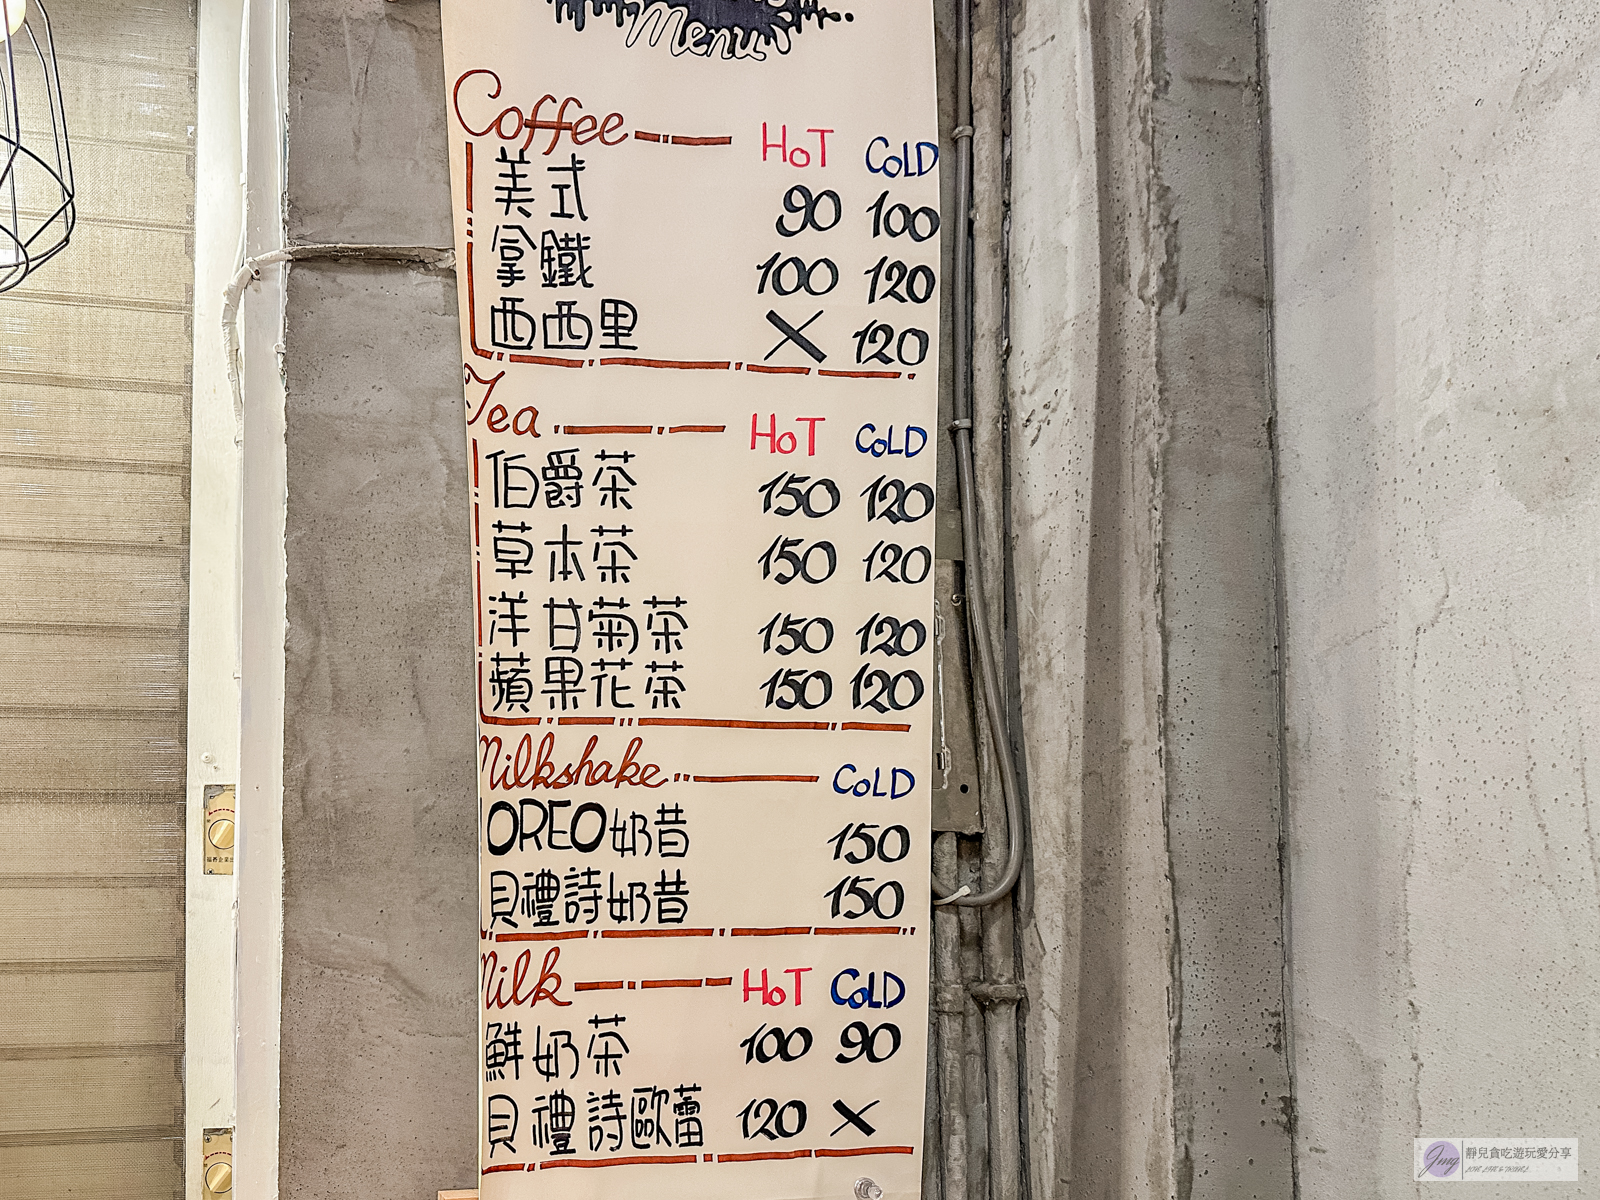 Menu
Coffee HOT COLD
美式 90 100
拿鐵 100 120
西西里 X 120
Tea HOT COLD
伯爵茶 150 120
草本茶 150 120
洋甘菊茶 150 120
蘋果花茶 150 120
Milkshake COLD
OREO奶昔 150
貝禮詩奶昔 150
Milk HOT COLD
鮮奶茶 100 90
貝禮詩歐蕾 120 X
Jing
靜兒貪吃遊玩愛分享